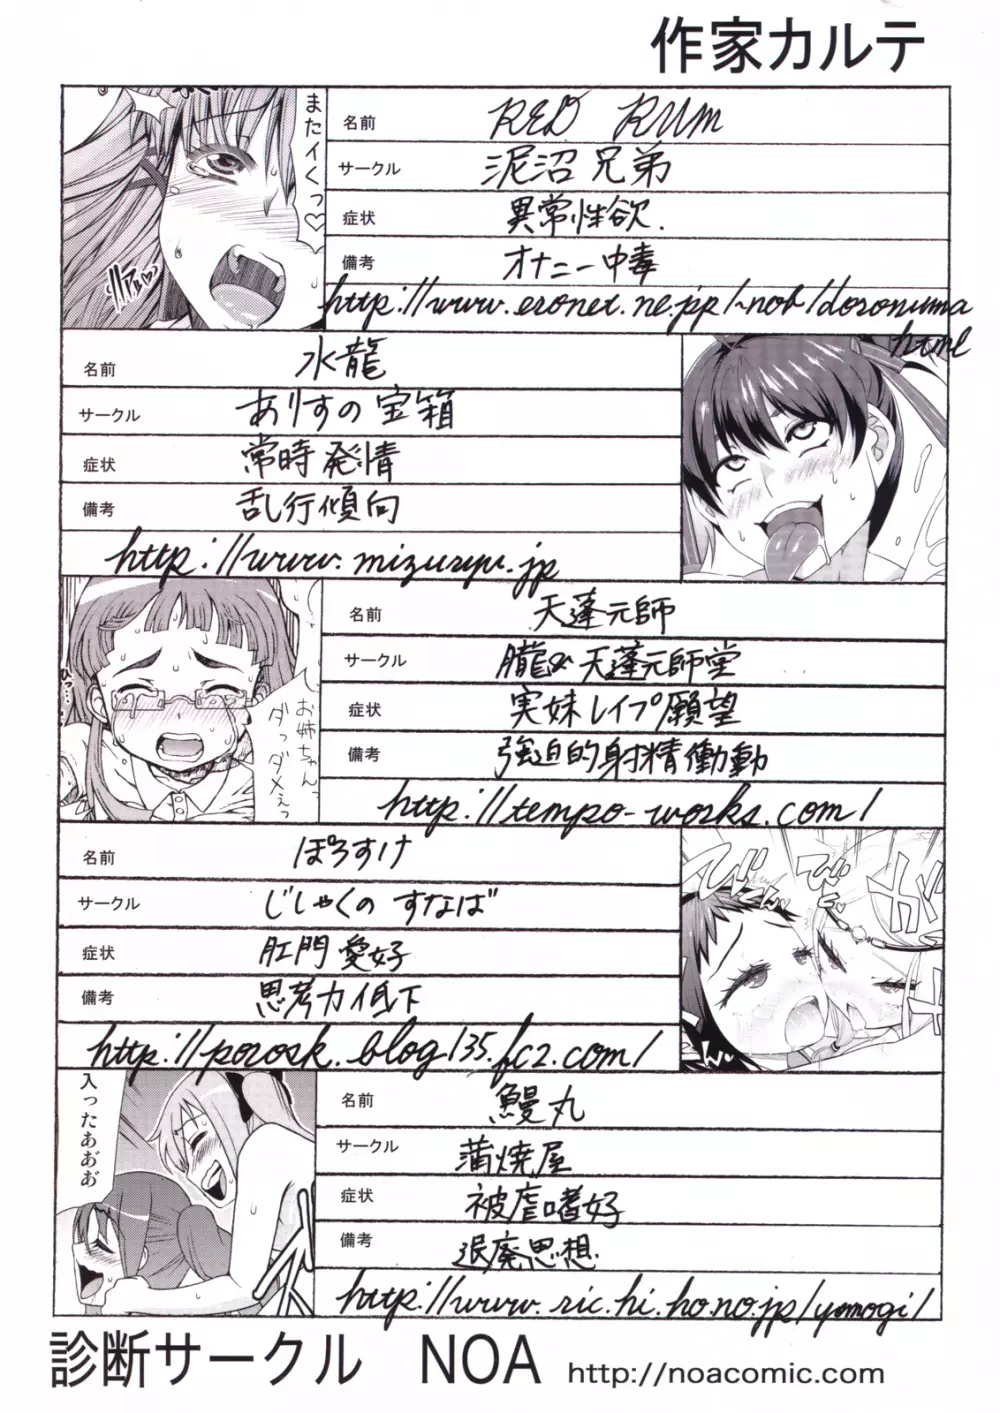 作家カルテ
またイくっ♡
名前 RED RUM
サークル 泥沼兄弟
症状 異常性欲.
備考 オナニー中毒
http://www.eronet.ne.jp/~nob/doronuma
html
名前 水龍
サークル ありすの宝箱
症状 常時発情
備考 乱行傾向
http://www.mizuryu.jp
名前 天蓬元師
サークル 朧&天蓬元師堂
備考 強迫的射精衝動
http://tempo-works.com/
名前 ぽろすけ
サークル じしゃくのすなば
症状 肛門愛好
備考 思考力低下
http://porosk.blog135.fc2.com/
名前 鰻丸
サークル 蒲焼屋
症状 被虐嗜好
備考 退廃思想
http://www.ric.hi.ho.ne.jp/yomogi/
診断サークル NOA http://noacomic.com